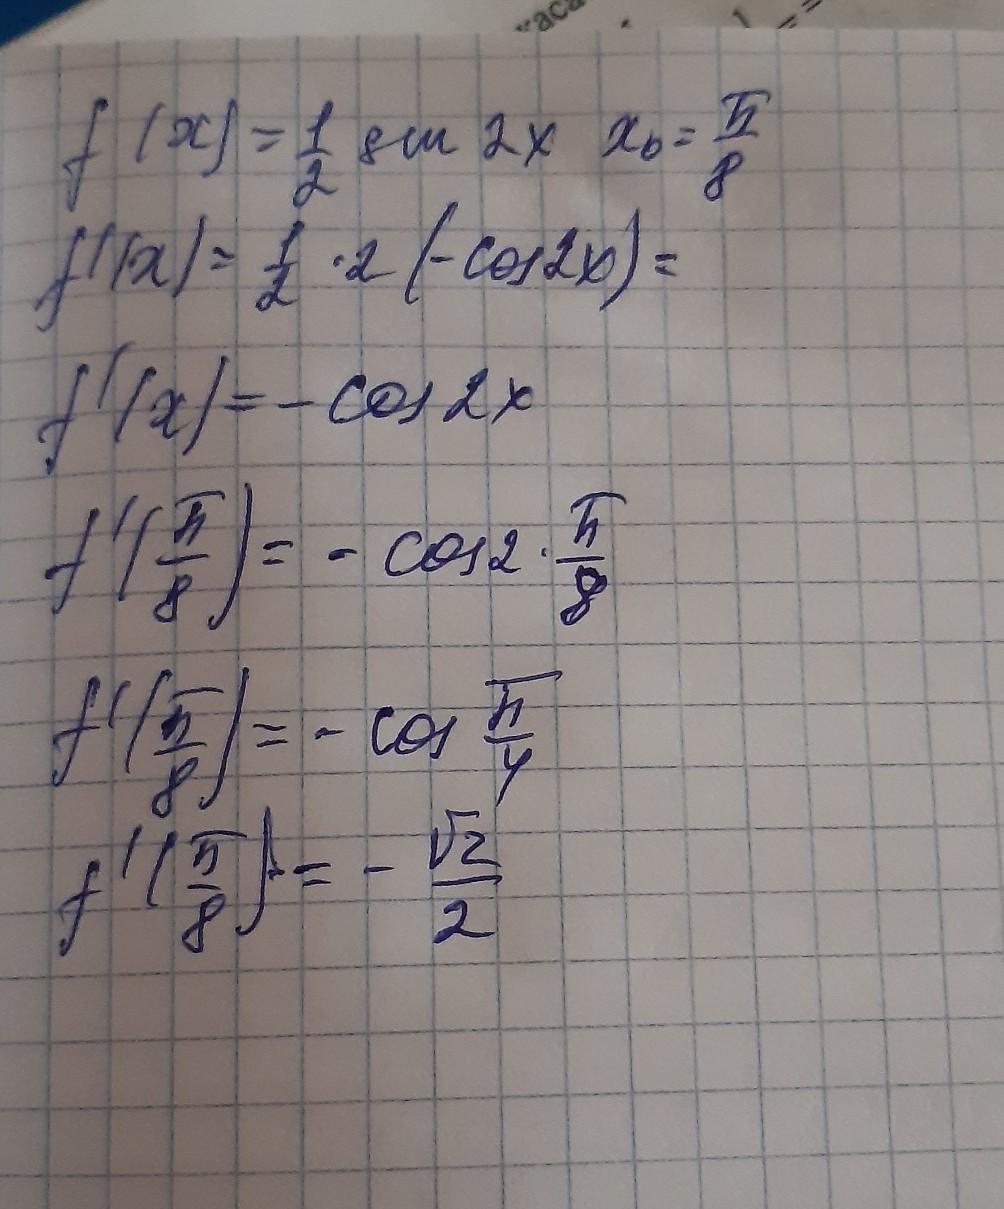 каса
f(x) = 1/2 sin 2x x₀ = π/8
f'(x) = 1/2 · 2 (-cos2x) =
f'(x) = - cos 2x
f'(π/8) = - cos2 · π/8
f'(π/8) = - cos π/4
f'(π/8) = - √2/2